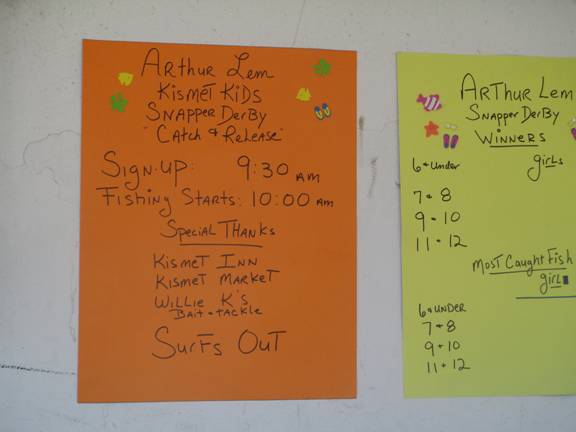 Arthur Lem
Kismet Kids
Snapper Derby
"Catch & Release"
Sign-up: 9:30 AM
Fishing Starts: 10:00 AM
Special Thanks
Kismet Inn
Kismet Market
Willie K's
Bait & tackle
Surfs Out
Arthur Lem
Snapper Derby
Winners
6 & Under girls
7 & 8
9 & 10
11 & 12
Most Caught Fish
girl
6 & Under
7 & 8
9 & 10
11 & 12